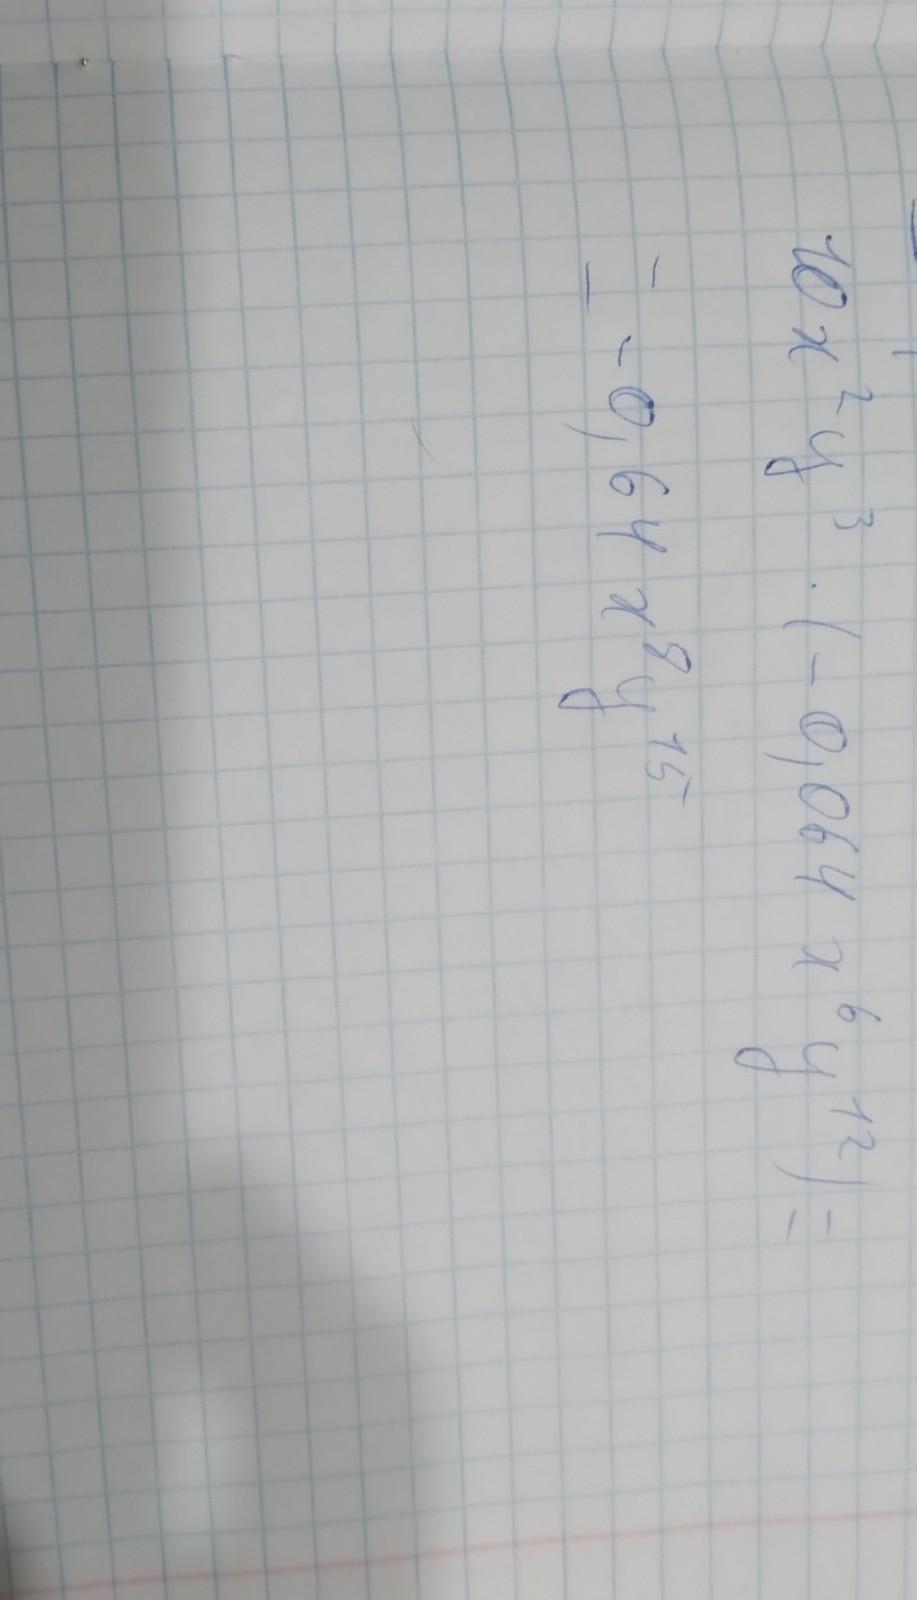 10x²y³ · (-0,064x⁶y¹²) =
= -0,64x⁸y¹⁵